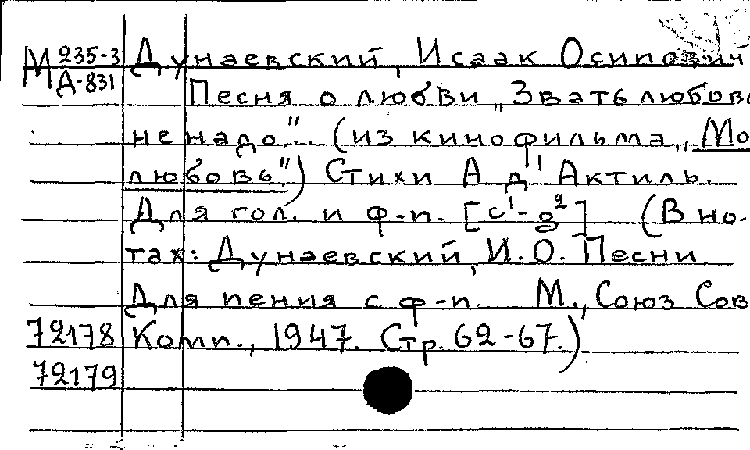 М 235-3 Дунаевский, Исаак Осипович
Д-831 Песня о любви „Звать любовь
не надо"... (из кинофильма „Мо
любовь") Стихи А д' Актиль.
Для гол. и ф-п. [c¹-g²] (В но-
тах: Дунаевский, И.О. Песни
для пения с ф-п. М., Союз Сов
72178 Комп., 1947. Стр. 62-67.)
72179